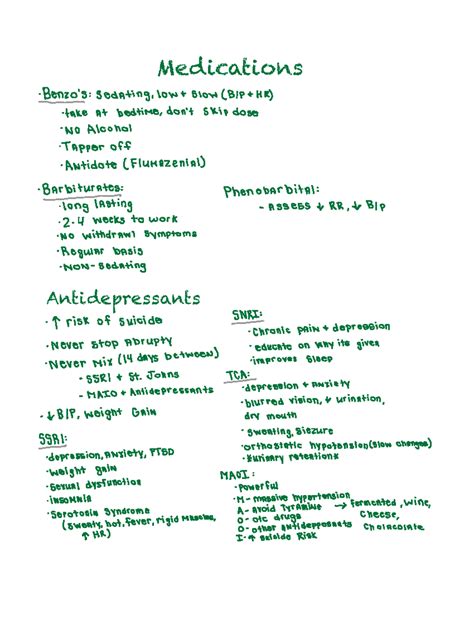 Medications
·Benzo's: sedating, low + slow (B/P + HR)
·take at bedtime, don't skip dose
·No Alcohol
·Tapper off
·Antidote (Flumazenial)
·Barbiturates:
·long lasting
·2-4 weeks to work
·No withdrawl symptoms
·Regular basis
·Non-sedating
Phenobarbital:
- Assess ↓ RR, ↓ B/P
Antidepressants
·↑ risk of suicide
·Never stop Abrupty
·Never Mix (14 days between)
- SSRI + St. Johns
- MAIO + Antidepressants
·↓ B/P, Weight Gain
SSRI:
·depression, Anxiety, PTSD
·Weight gain
·Sexual dysfunction
·insomnia
·Serotosin Syndrome
(Sweaty, hot, fever, rigid Muscles,
↑ HR)
SNRI:
·Chronic pain + depression
·educate on why its given
·improves Sleep
TCA:
·depression + Anxiety
·blurred vision, ↓ urination,
dry mouth
·Sweating, Siezure
·orthostatic hypotension (Slow changes)
*urinary retention*
MAOI:
·Powerful
·M- massive hypertension
A- avoid Tyramine → fermented, wine,
O- otc drugs cheese,
O- other antidepposnats Cholacolate
I- ↑ Suicide Risk